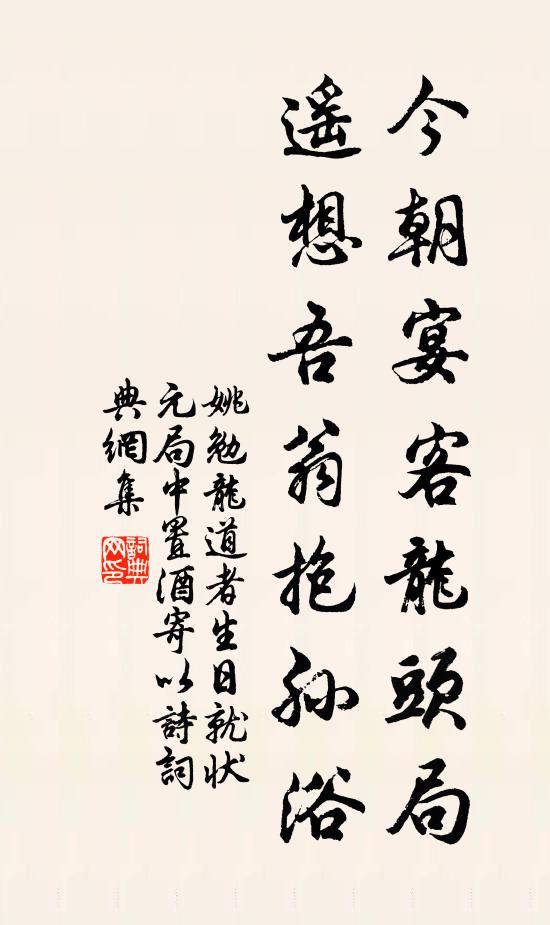 今朝宴客龍頭局
遥想吾翁抱孫浴
姚勉龍道者生日就状
元局中置酒寄以詩詞
典網集
詞典
网印